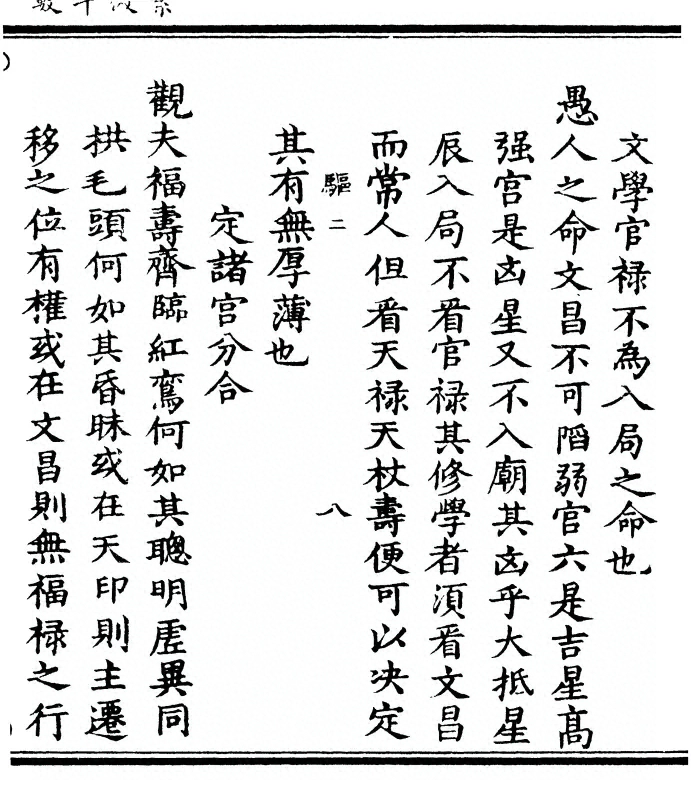 文學官祿不為入局之命也
愚人之命文昌不可陷弱官六是吉星高
强宫是凶星又不入廟其凶乎大抵星
辰入局不看官祿其修學者須看文昌
而常人但看天祿天杖壽便可以决定
驅二 八
其有無厚薄也
定諸宫分合
觀夫福壽齊臨紅鸞何如其聰明虛異同
拱毛頭何如其昏昧或在天印則主遷
移之位有權或在文昌則無福祿之行